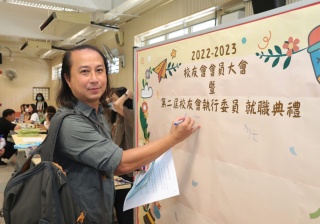 2022-2023
校友會會員大會
暨
第二屆校友會執行委員 就職典禮